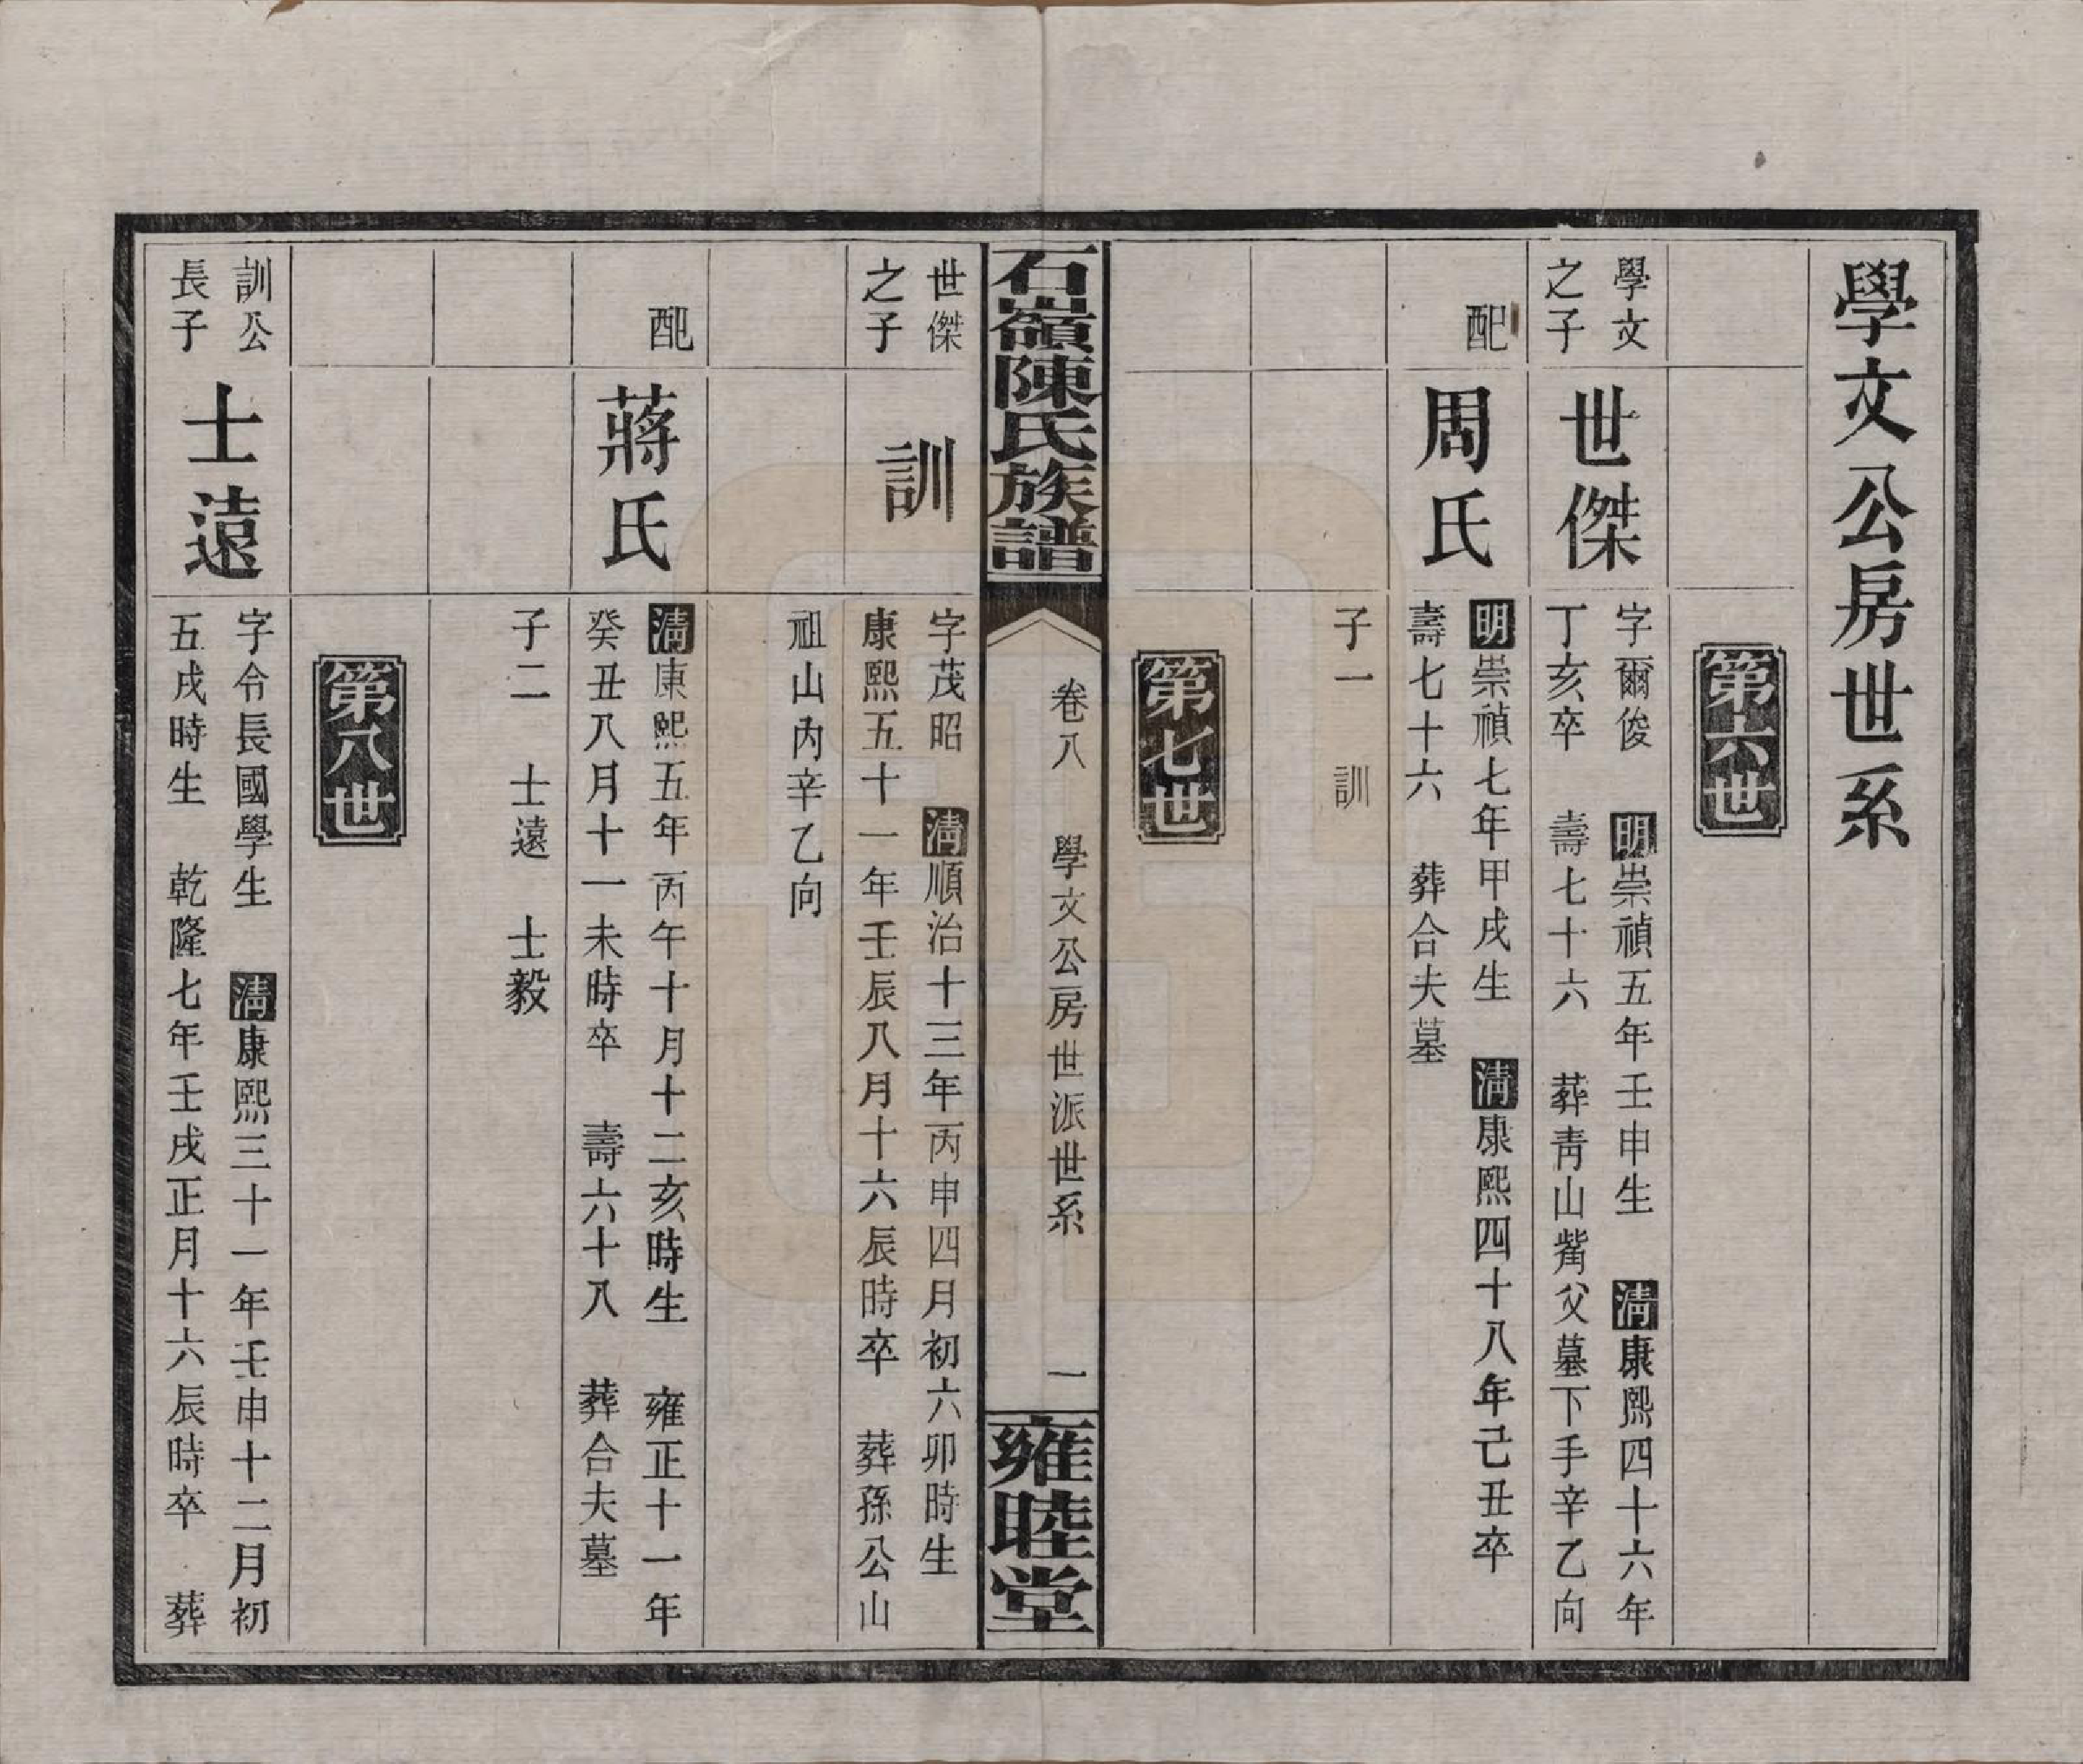 學文公房世系
第六世
學文
之子
世傑
字爾俊　明崇禎五年壬申生　清康熙四十六年
丁亥卒　壽七十六　葬青山觜父墓下手辛乙向
配
周氏
明崇禎七年甲戌生　清康熙四十八年己丑卒
壽七十六　葬合夫墓
子一　訓
第七世
石嶺陳氏族譜
卷八　學文公房世派世系
一
雍睦堂
世傑
之子
訓
字茂昭　清順治十三年丙申四月初六卯時生
康熙五十一年壬辰八月十六辰時卒　葬孫公山
祖山內辛乙向
配
蔣氏
清康熙五年丙午十月十二亥時生　雍正十一年
癸丑八月十一未時卒　壽六十八　葬合夫墓
子二　士遠　士毅
第八世
訓公
長子
士遠
字令長國學生　清康熙三十一年壬申十二月初
五戌時生　乾隆七年壬戌正月十六辰時卒　葬